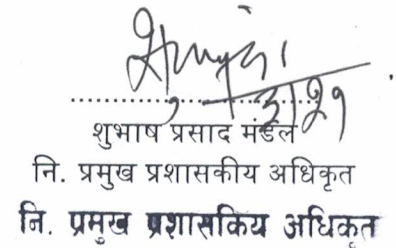 शुभाष प्रसाद मंडल
नि. प्रमुख प्रशासकीय अधिकृत
नि. प्रमुख प्रशासकिय अधिकृत